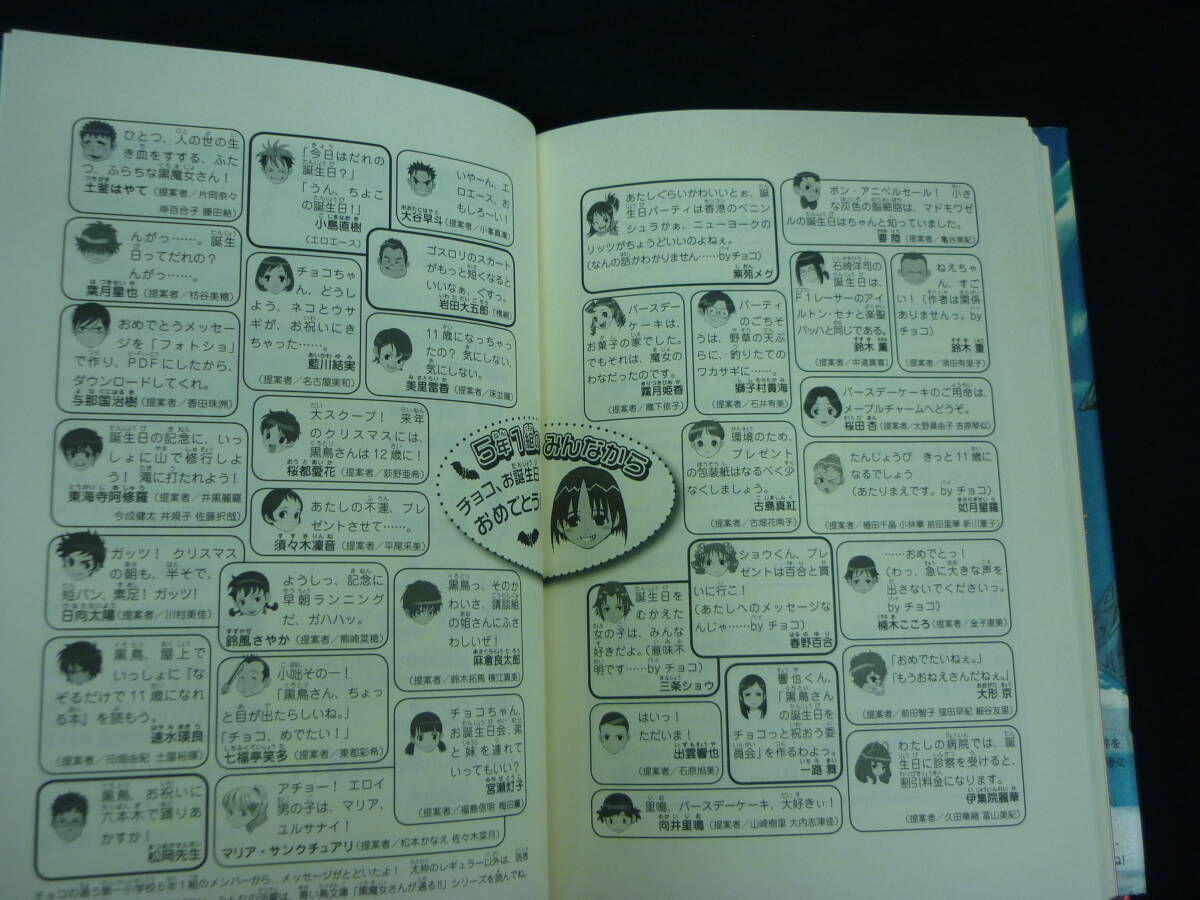 ひとつ、人の世の生
き血をすする、ふた
つ、ふらちな黒魔女さん！
土釜はやて（提案者／片岡奈々
岸百合子 藤田結）
「今日はだれの
誕生日？」
「うん、ちよこ
の誕生日！」
小島直樹
（エロエース）
いやーん、エ
ロエース、お
もしろ〜い！
大谷早斗（提案者／小峯真凜）
んがっ……。誕生
日ってだれの？
んがっ……。
葉月星也（提案者／枋谷美穂）
チョコちゃ
ん、どうし
よう、ネコとウサ
ギが、お祝いにき
ちゃった……。
藍川結実
（提案者／名古屋実和）
ゴスロリのスカート
がもっと短くなると
いいなぁ、ぐすっ。
岩田大五郎（横綱）
おめでとうメッセー
ジを「フォトショ」
で作り、PDFにしたから、
ダウンロードしてくれ。
与那国治樹（提案者／香田珠洲）
11歳になっちゃっ
たの？ 気にしない、
気にしない。
美里雷香（提案者／床並瞳）
誕生日の記念に、いっ
しょに山で修行しよ
う！ 滝に打たれよう！
東海寺阿修羅（提案者／井黒麗羅
今成健太 井規子 佐藤択哉）
大スクープ！ 来年
のクリスマスには、
黒鳥さんは12歳に！
桜都愛花（提案者／荻野亜希）
あたしの不運、プレ
ゼントさせて……。
須々木凜音（提案者／平尾采美）
ガッツ！ クリスマス
の朝も、半そで、
短パン、素足！ガッツ！
日向太陽（提案者／川村美佳）
ようしっ、記念に
早朝ランニング
だ、ガハハッ。
鈴風さやか（提案者／熊崎菜穂）
黒鳥っ、そのか
わいさ、講談組
の姐さんにふさ
わしいぜ！
麻倉良太郎
（提案者／鈴木拓馬 横江真美）
黒鳥、屋上で
いっしょに『な
ぞるだけで11歳になれ
る本』を読もう。
速水瑛良
（提案者／田畑由紀 土屋裕暉）
小咄その一！
「黒鳥さん、ちょっ
と目が出たらしいね。」
「チョコ、めでたい！」
七福亭笑多（提案者／東都彩希）
チョコちゃん、
お誕生日会、弟
と妹を連れて
いってもいい？
宮瀬灯子
（提案者／福島信明 梅田薫）
黒鳥、お祝いに
六本木で踊りあ
かすか！
松岡先生
アチョー！ エロイ
男の子は、マリア、
ユルサナイ！
マリア・サンクチュアリ（提案者／松本かなえ 佐々木菜月）
チョコの通う第一小学校5年1組のメンバーから、メッセージがとどいたよ！ 太枠のレギュラー以外は、読者
青い鳥文庫「黒魔女さんが通る!!」シリーズを読んでね。
5年1組の みんなから
チョコ、お誕生日
おめでとう
あたしぐらいかわいいとぉ、誕
生日パーティは香港のペニン
シュラかぁ、ニューヨークの
リッツがちょうどいいのよねぇ。
（なんの話かわかりません……byチョコ）
紫苑メグ
ボン・アニベルセール！ 小さ
な灰色の脳細胞は、マドモワゼ
ルの誕生日はちゃんと知っていました。
要 陸（提案者／亀谷実紀）
バースデー
ケーキは、
お菓子の家でした。
でもそれは、魔女の
わなだったのです。
霧月姫香
（提案者／蔵下依子）
パーティ
のごちそ
うは、野草の天ぷ
らに、釣りたての
ワカサギに……。
獅子村貴海
（提案者／石井有美）
石崎洋司の
誕生日は、
F1レーサーのアイ
ルトン・セナと楽聖
バッハと同じである。
鈴木 薫
（提案者／中道真喜）
ねえちゃ
ん、すご
い！（作者は関係
ありませんっ。by
チョコ）
鈴木 重
（提案者／須田有里子）
バースデーケーキのご用命は、
メープルチャームへどうぞ。
桜田 杏（提案者／大野眞由子 吉原琴似）
環境のため、
プレゼント
の包装紙はなるべく少
なくしましょう。
古島真紅
（提案者／古畑花南子）
たんじょうび きっと11歳に
なるでしょう
（あたりまえです。byチョコ）
如月星羅
（提案者／植田千晶 小林華 前田里華 新川夏子）
ショウくん、プレ
ゼントは百合と買
いに行こ！
（あたしへのメッセージな
んじゃ……byチョコ）
春野百合
……おめでとっ！
（わっ、急に大きな声を
出さないでくださいっ。
byチョコ）
楠木こころ（提案者／金子恵美）
誕生日を
むかえた
女の子は、みんな
好きだよ。（意味不
明です……byチョコ）
三条ショウ
響也くん、
「黒鳥さん
の誕生日を
ひっそりと祝おう委
員会」を作るわよっ。
一路 舞
「おめでたいねぇ。」
「もうおねえさんだねぇ。」
大形 京
（提案者／前田智子 窪田早紀 細谷友里）
はいっ！
ただいま！
出雲響也
（提案者／石原旭美）
わたしの病院では、誕
生日に診察を受けると、
割引料金になります。
伊集院麗華
（提案者／久田華緒 冨山美紀）
里鳴、バースデーケーキ、大好きぃ！
向井里鳴（提案者／山崎樹里 大内志津佳）